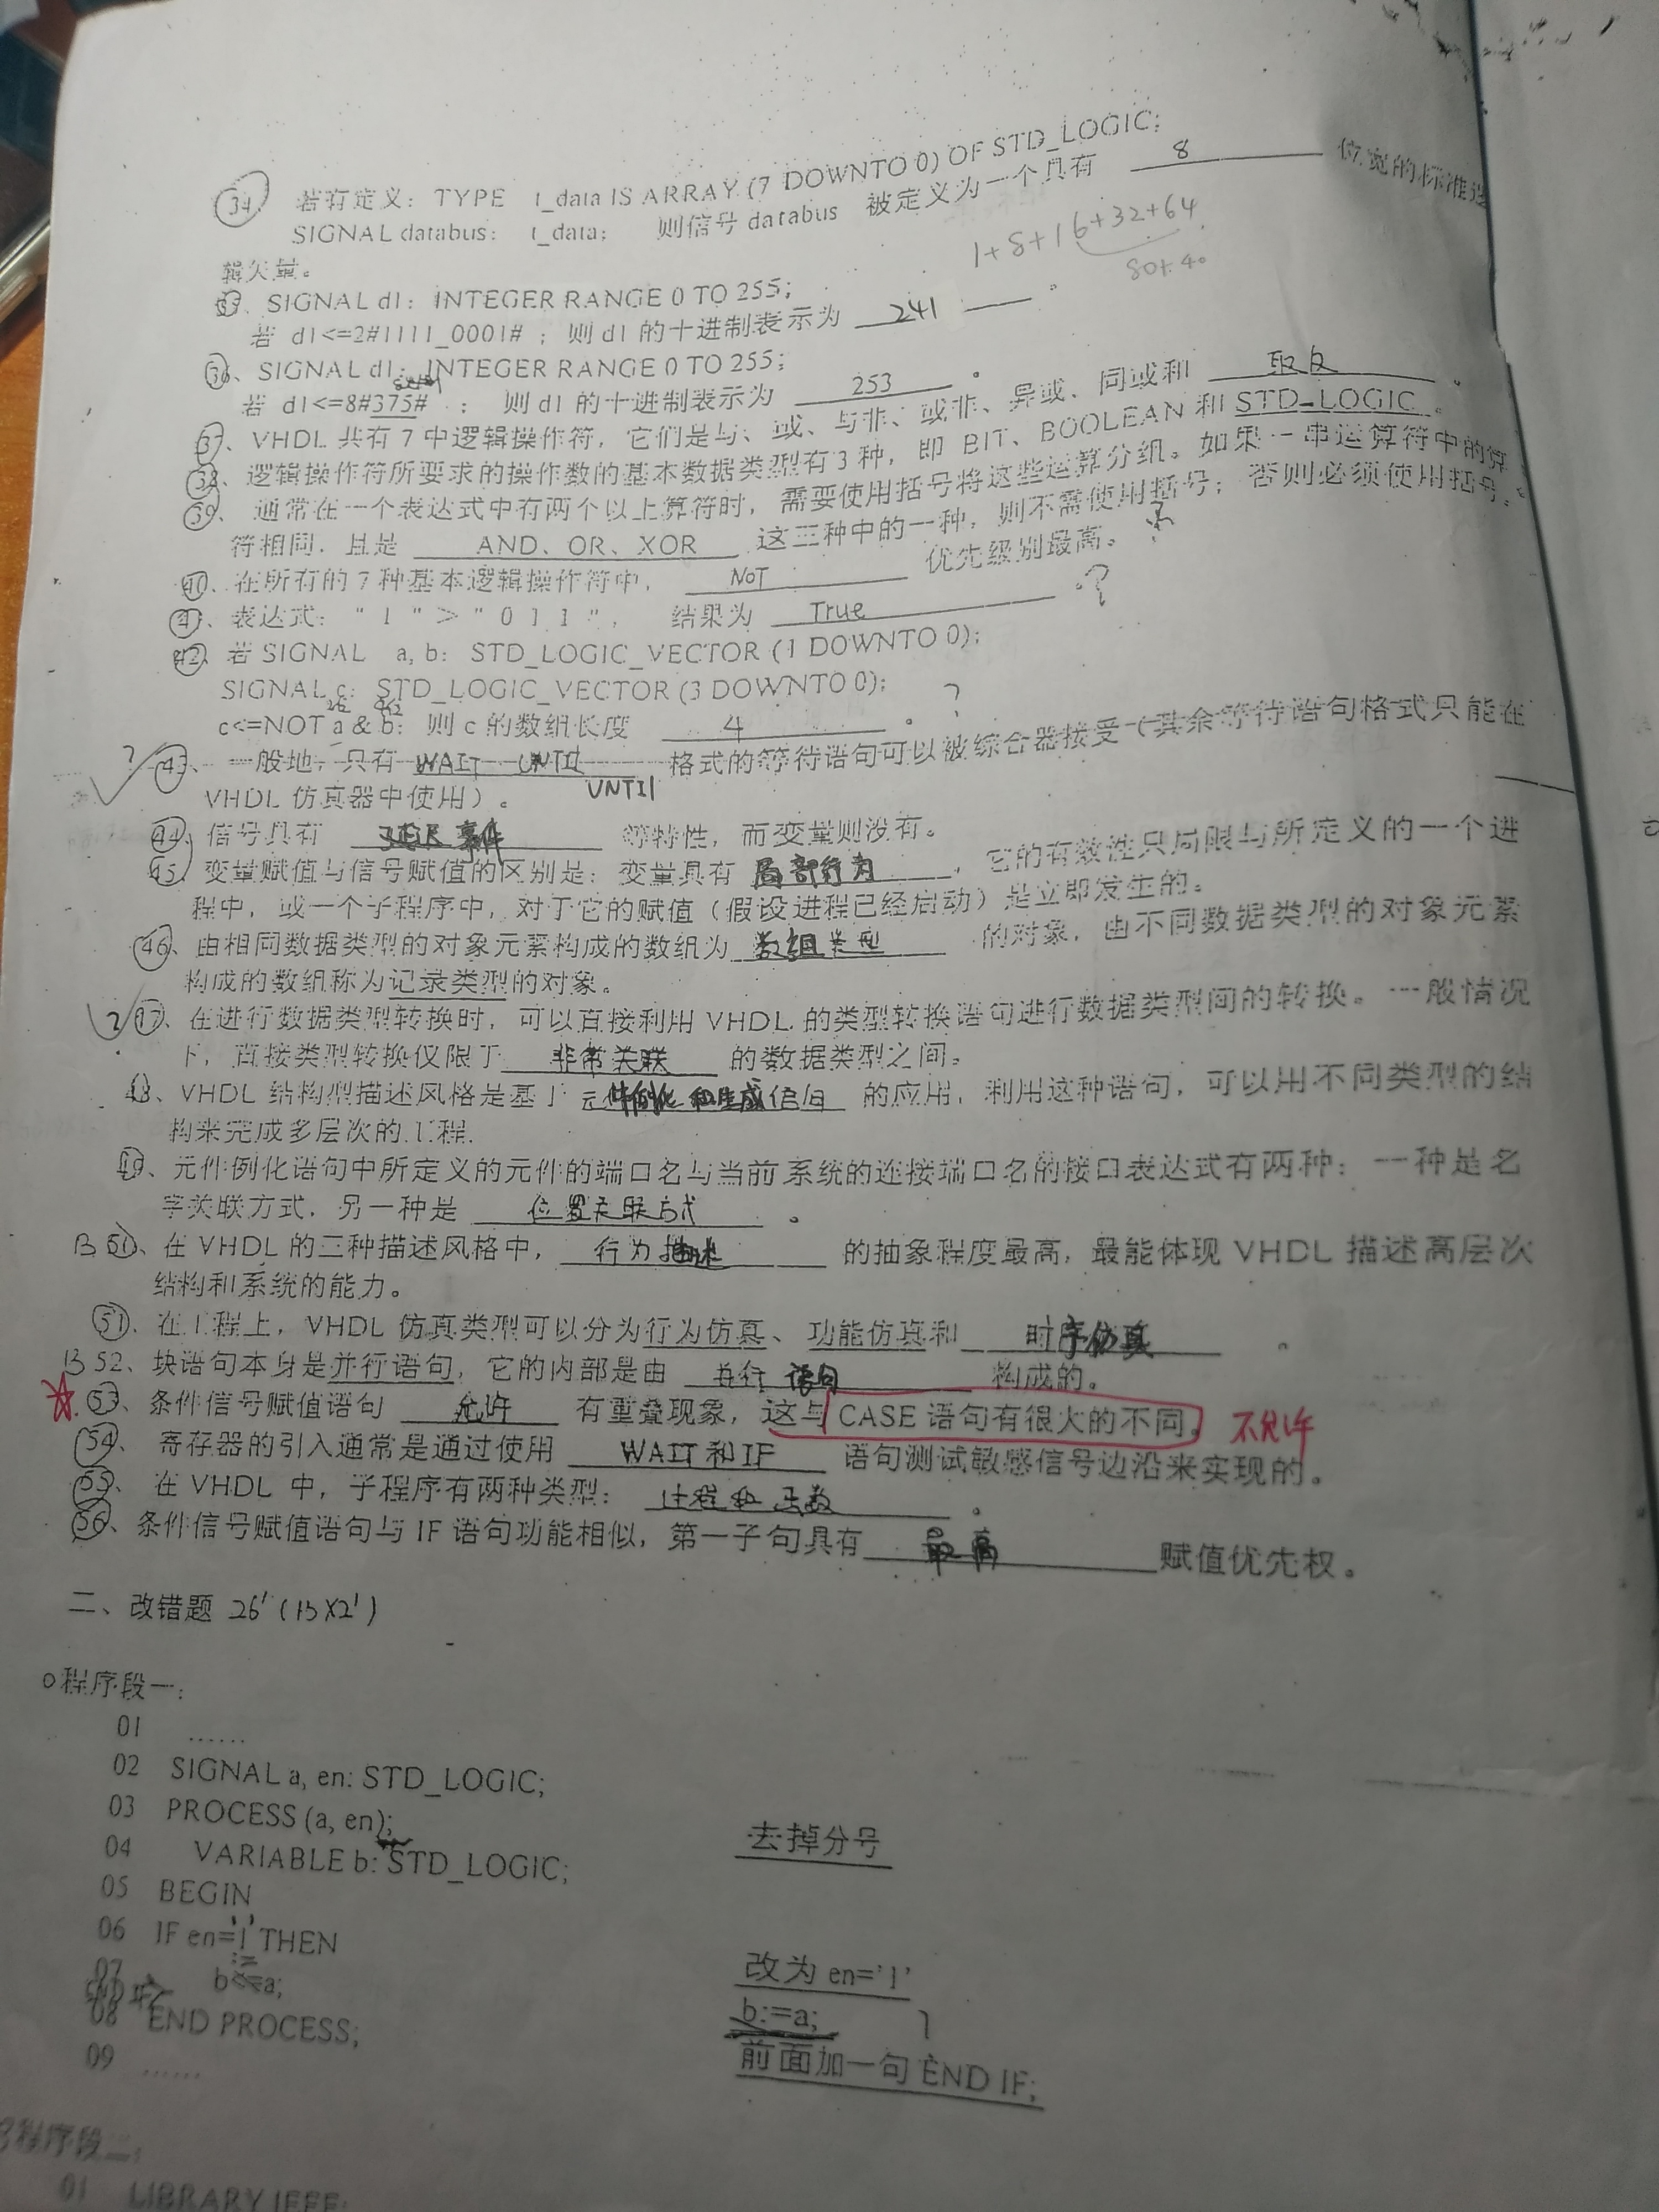 34 若有定义：TYPE t_data IS ARRAY (7 DOWNTO 0) OF STD_LOGIC;
SIGNAL databus： t_data； 则信号 databus 被定义为一个具有 8 位宽的标准逻
1+8+16+32+64
辑矢量。
35、SIGNAL d1：INTEGER RANGE 0 TO 255；
若 d1<=2#1111_0001# ；则 d1 的十进制表示为 241 。
36、SIGNAL d1：INTEGER RANGE 0 TO 255；
若 d1<=8#375# ； 则 d1 的十进制表示为 253 。
37、VHDL 共有 7 中逻辑操作符，它们是与、或、与非、或非、异或、同或和 取反 。
38、逻辑操作符所要求的操作数的基本数据类型有 3 种，即 BIT、BOOLEAN 和 STD_LOGIC 。
39、通常在一个表达式中有两个以上算符时，需要使用括号将这些运算分组。如果一串运算符中的算
符相同，且是 AND、OR、XOR 这三种中的一种，则不需使用括号；否则必须使用括号。
40、在所有的 7 种基本逻辑操作符中， NOT 优先级别最高。
41、表达式：“ 1 ” > “ 0 1 1 ”， 结果为 True ?
42、若 SIGNAL a, b： STD_LOGIC_VECTOR (1 DOWNTO 0)；
SIGNAL c： STD_LOGIC_VECTOR (3 DOWNTO 0)；
c<=NOT a & b； 则 c 的数组长度 4 。 ?
? 43、一般地，只有 WAIT UNTIL 格式的等待语句可以被综合器接受（其余等待语句格式只能在
UNTIL
VHDL 仿真器中使用）。
44、信号具有 延迟 事件 等特性，而变量则没有。
45、变量赋值与信号赋值的区别是：变量具有 局部行为 ，它的有效性只局限与所定义的一个进
程中，或一个子程序中，对于它的赋值（假设进程已经启动）是立即发生的。
46、由相同数据类型的对象元素构成的数组为 数组类型 的对象，由不同数据类型的对象元素
构成的数组称为记录类型的对象。
47、在进行数据类型转换时，可以直接利用 VHDL 的类型转换语句进行数据类型间的转换。一般情况
下，直接类型转换仅限于 非常关联 的数据类型之间。
48、VHDL 结构型描述风格是基于 元件例化和生成语句 的应用，利用这种语句，可以用不同类型的结
构来完成多层次的工程.
49、元件例化语句中所定义的元件的端口名与当前系统的连接端口名的接口表达式有两种：一种是名
字关联方式，另一种是 位置关联方式 。
50、在 VHDL 的三种描述风格中， 行为描述 的抽象程度最高，最能体现 VHDL 描述高层次
结构和系统的能力。
51、在工程上，VHDL 仿真类型可以分为行为仿真、功能仿真和 时序仿真 。
52、块语句本身是并行语句，它的内部是由 并行 语句 构成的。
53、条件信号赋值语句 允许 有重叠现象，这与 CASE 语句有很大的不同。 不允许
54、寄存器的引入通常是通过使用 WAIT 和 IF 语句测试敏感信号边沿来实现的。
55、在 VHDL 中，子程序有两种类型： 过程和函数 。
56、条件信号赋值语句与 IF 语句功能相似，第一子句具有 最高 赋值优先权。
二、改错题 26' (13X2')
程序段一：
01 ……
02 SIGNAL a, en: STD_LOGIC;
03 PROCESS (a, en); 去掉分号
04 VARIABLE b: STD_LOGIC;
05 BEGIN
06 IF en='1' THEN 改为 en='1'
07 b<=a; b:=a;
08 END PROCESS; 前面加一句 END IF;
09 ……
程序段二：
01 LIBRARY IEEE;